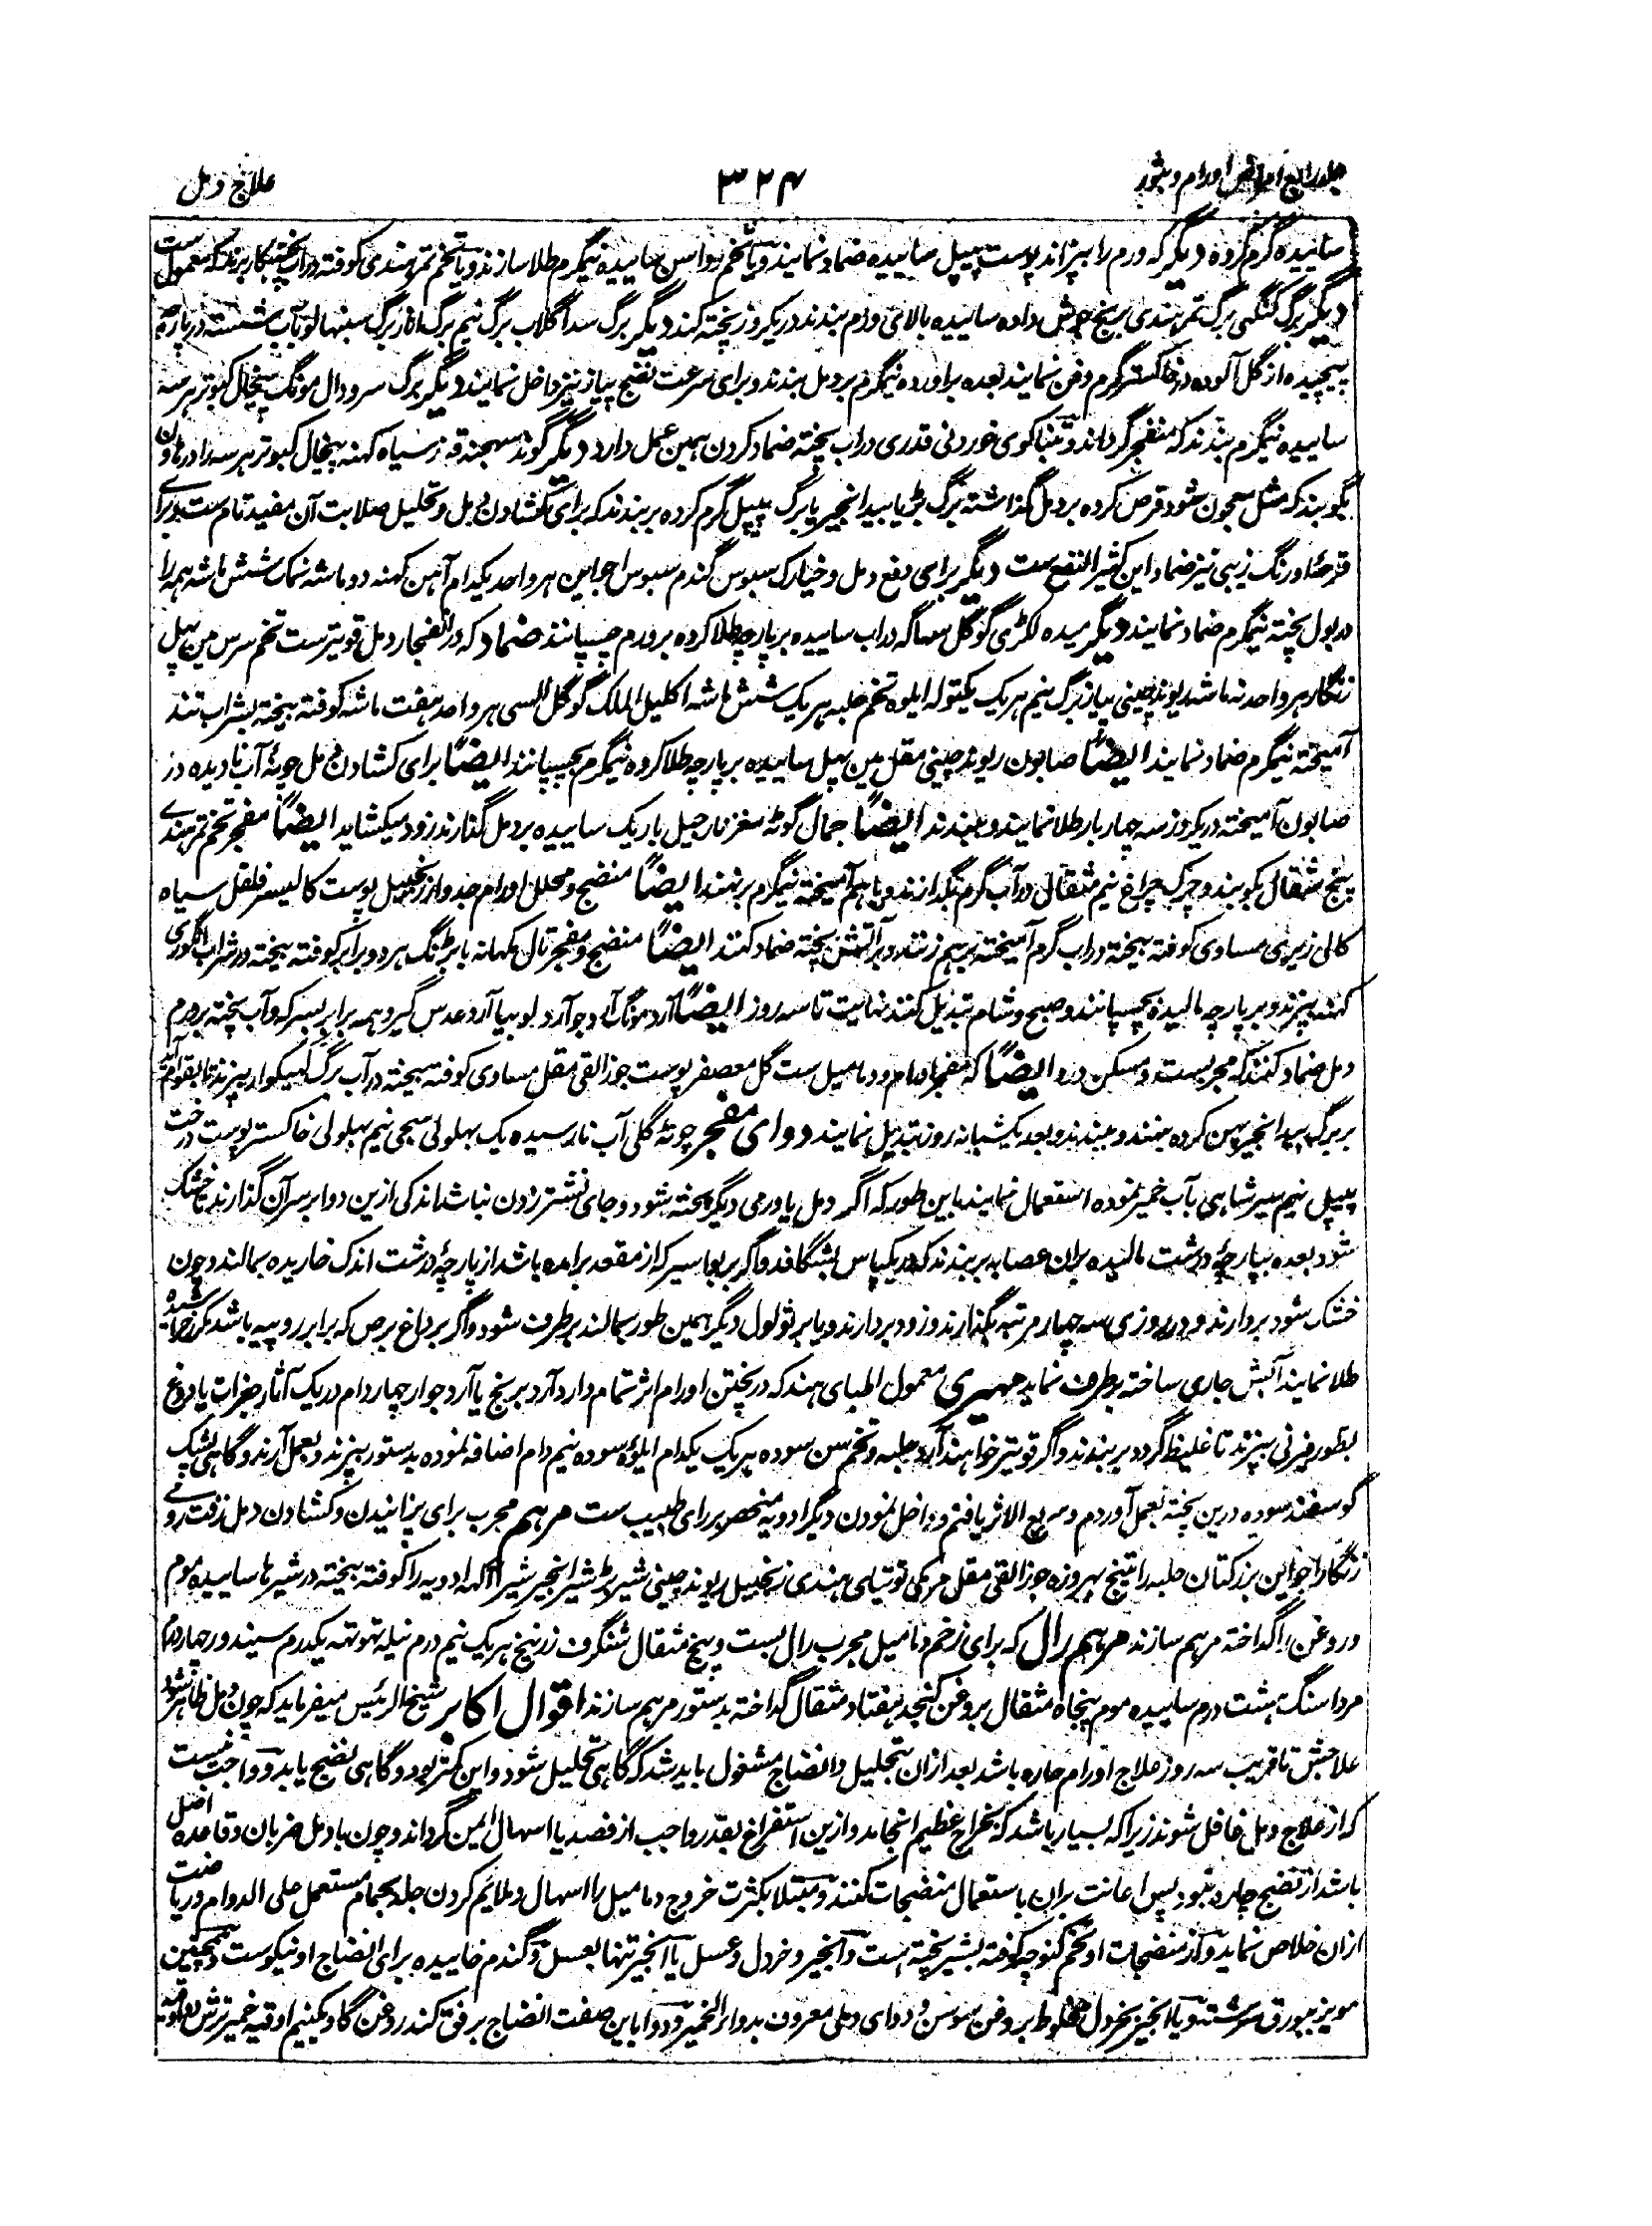 جلد رابع امراض اورام و بثور ۳۲۴ علاج دمل
ساییده گرم کرده دیگر که ورم را بپزاند پوست پیپل ساییده ضماد نمایند و یا تخم ساییده نیمگرم طلا سازند و یا تخم تمر هندی کوفته در آب پخته بکار برند که معمول ست
دیگر برگ کنگهی برگ تمر هندی برنج جوش داده ساییده بالای ورم بندند در یکروز پخته کند دیگر برگ سدا گلاب برگ نیم برگ انار برگ سنبهالو بآب شسته در پارچه
پیچیده از گل آلوده در خاکستر گرم دفن نمایند بعده براورده نیمگرم بر دمل بندند و برای سرعت نضج پیاز نیز داخل نمایند دیگر برگ سرو دال مونگ پیخال کبوتر هر سه
ساییده نیمگرم بندند که منفجر گرداند و تنباکوی خوردنی قدری در آب پخته ضماد کردن همین عمل دارد دیگر گوند سهجنه قند سیاه کهنه پیخال کبوتر هر سه را در هاون
بکوبند که مثل معجون شود قرص کرده بر دمل گذاشته برگ بڑ یا بید انجیر یا برگ پیپل گرم کرده بربندند که برای کشادن دمل و تحلیل صلابت آن مفید تام ست و برای
نیز ضماد این کثیر النفع ست دیگر برای دفع دمل و خیارک سبوس گندم سبوس اجواین هر واحد یکدام آهن کهنه دو ماشه نمک شش ماشه همه را
در بول پخته نیمگرم ضماد نمایند دیگر میده لکڑی گوگل سهاگه در آب ساییده بر پارچه طلا کرده برورم چسپانند ضماد که در انفجار دمل قویتر ست تخم سرس مین پهل
زنگار هر واحد نه ماشه ریوند چینی پیاز برگ نیم هر یک یکتوله ایلوه تخم حلبه هر یک شش ماشه اکلیل الملک گوگل السی هر واحد هفت ماشه کوفته بیخته بشراب تند
آمیخته نیمگرم ضماد نمایند ایضاً صابون ریوند چینی مقل مین پهل ساییده بر پارچه طلا کرده نیمگرم بچسپانند ایضاً برای کشادن دمل چونهٔ آب نادیده در
صابون آمیخته در یکروز سه چهار بار طلا نمایند و ببندند ایضاً جمال گوٹه مغز نارجیل باریک ساییده بر دمل گذارند زود میکشاید ایضاً مفجر تخم تمر هندی
پنج مثقال بکوبند و چرک چراغ نیم مثقال در آب گرم بگدازند و باهم آمیخته نیمگرم برنهند ایضاً منضج و محلل اورام جدوار زنجبیل پوست کالیسر فلفل سیاه
کالی زیری مساوی کوفته بیخته در آب گرم آمیخته برهم زنند و بر آتش پخته ضماد کنند ایضاً منضج و مفجر تال مکهانه بابڑنگ هر دو برابر کوفته بیخته در شراب انگوری
کهنه بپزند و بر پارچه مالیده بچسپانند و صبح و شام تبدیل کنند نهایت تا سه روز ایضاً آرد مونگ آرد جو آرد لوبیا آرد عدس گیرو همه برابر بسرکه و آب پخته برورم
دمل ضماد کنند که مجرب ست و مسکن درد ایضاً که مفجر اورام و دمامیل ست گل معصفر پوست جوز القی مقل مساوی کوفته بیخته در آب برگ گهیکوار بپزند تا بقوام آید
بر برگ بید انجیر پهن کرده بنهند و ببندند و بعد یکشبانه روز تبدیل نمایند دوای مفجر چونه گلی آب نارسیده یک بهلولی سجی نیم بهلولی خاکستر پوست درخت
پیپل نیم سیر شاهی بآب خمیر نموده استعمال نمایند باین طور که اگر دمل یا ورمی دیگر پخته شود و جای نشتر زدن نباشد اندکی ازین دوا بر سر آن گذارند تا خشک
شود بعده بپارچهٔ درشت مالیده بران عصابه بربندند که در یکپاس بشگافد و اگر بر بواسیر که از مقعد برامده باشد از پارچهٔ درشت اندک خاریده بمالند و چون
خشک شود بردارند و در روزی سه چهار مرتبه بگذارند و زود بردارند و یا بر ثولول دیگر همین طور بمالند برطرف شود و اگر بر داغ برص که برابر روپیه باشد خراشیده
طلا نمایند آبش جاری ساخته برطرف نماید مهیری معمول اطبای هند که در پختن اورام اثر تمام دارد آرد برنج یا آرد جوار چهار دام در یک آثار جغرات یا دوغ
بطور فیرنی بپزند تا غلیظ گردد بربندند و اگر قویتر خواهند آرد حلبه و تخم سن سوده هر یک یکدام ایلوه سوده نیم دام اضافه نموده بدستور بپزند و بعمل آرند و گاهی پشک
گوسفند سوده درین پخته بعمل آوردم و سریع الاثر یافتم و داخل نمودن دیگر ادویه منحصر بر رای طبیب ست مرهم مجرب برای پزانیدن و کشادن دمل زفت رومی
زنگار اجواین بزر کتان حلبه راتینج بهروزه جوز القی مقل مر مکی توتیای هندی زنجبیل ریوند چینی شیر بڑ شیر انجیر شیر آکهه ادویه را کوفته بیخته در شیرها ساییده موم
در روغن را گداخته مرهم سازند مرهم رال که برای زخم دمامیل مجرب رال بست و پنج مثقال شنگرف زرنیخ هر یک نیم درم نیله تهوتهه یکدرم سیندور چهار درم
مردا سنگ هشت درم ساییده موم پنجاه مثقال بروغن کنجد هفتاد مثقال گداخته بدستور مرهم سازند اقوال اکابر شیخ الرئیس میفرماید که چون دمل ظاهر شود
علاجش تا قریب سه روز علاج اورام حاره باشد بعد ازان بتحلیل و انضاج مشغول باید شد که گاهی تحلیل شود و این کمتر بود و گاهی نضج یابد و واجب نیست
که از علاج دمل غافل شوند زیرا که بسیار باشد که بخراج عظیم انجامد و ازین استفراغ بقدر واجب از فصد یا اسهال ایمن گرداند و چون با دمل ضربان و قاعده اصل
باشد از نضج چاره نبود پس اعانت بران باستعمال منضجات کنند و مبتلا بکثرت خروج دمامیل را اسهال و ملائم کردن جلد بحمام مستعمل علی الدوام و ریاضت
ازان خلاص نماید و از منضجات او تخم کنوچه کوفته بشیر پخته است و انجیر و خردل و عسل یا انجیر تنها بعسل و گندم خاییده برای انضاج او نیکوست و همچنین
مویز ببورق سرشته و یا انجیر بخردل مخلوط بروغن سوسن و دوای دملی معروف بدواء الخمیر و دوا باین صفت انضاج برفق کند روغن گاو یکنیم اوقیه خمیر ترش